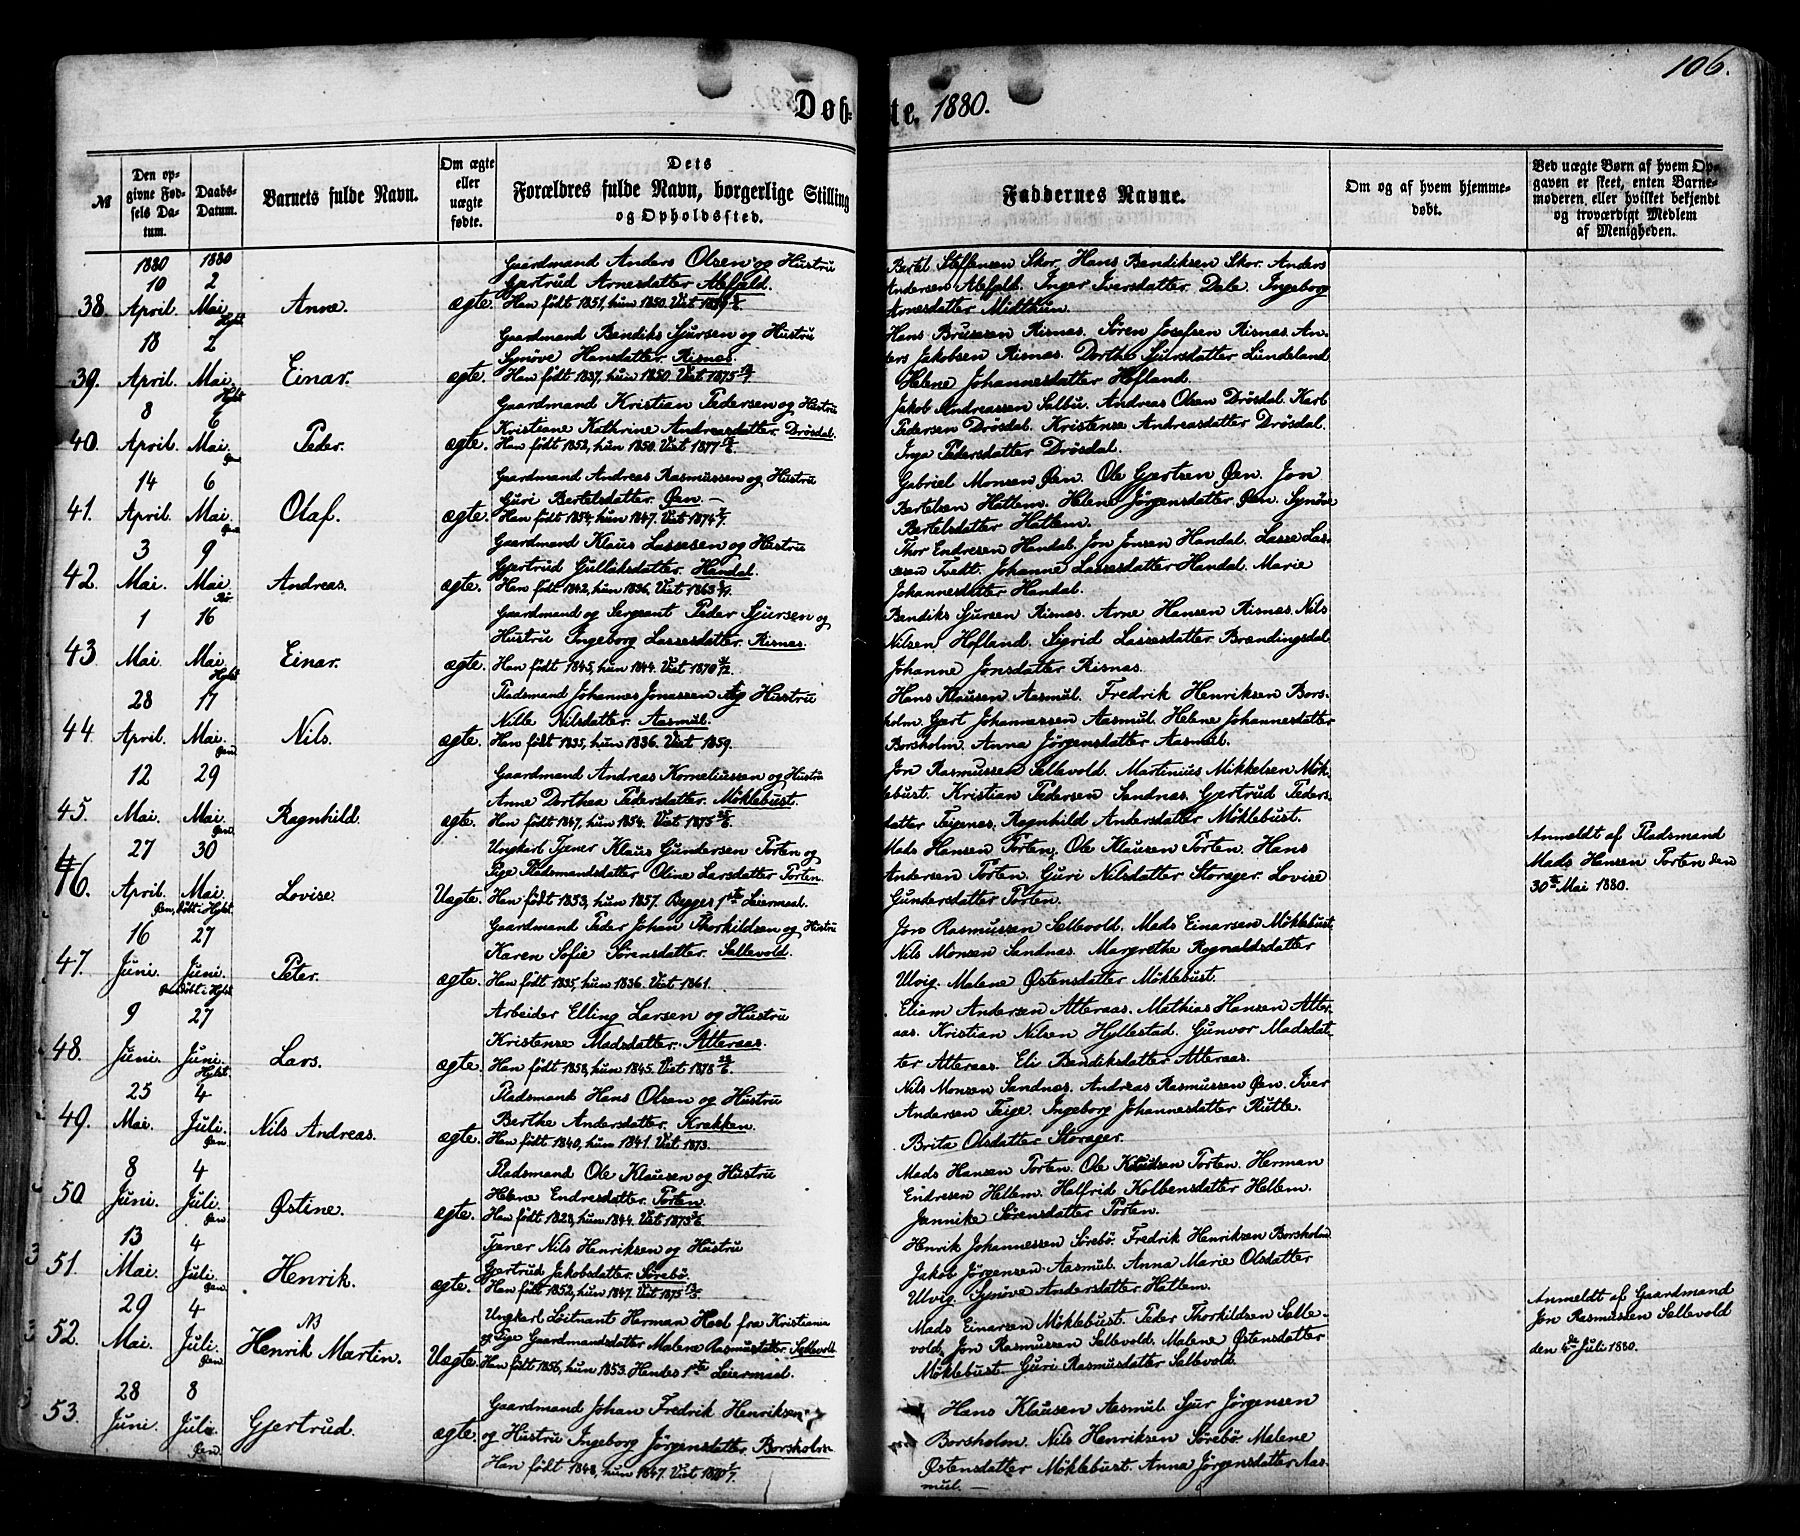 106.
Døb-te, 1880.
№ | Den opgivne Fødsels Datum. | Daabs-Datum. | Barnets fulde Navn. | Om ægte eller uægte fødte. | Dets Forældres fulde Navn, borgerlige Stilling og Opholdssted. | Faddernes Navne. | Om og af hvem hjemmedøbt. | Ved uægte Børn af hvem Opgaven er skeet, enten Barnemoderen, eller hvilket bekjendt og troværdigt Medlem af Menigheden.
1880 1880
Gaardmand Anders Olsen og Hustru
10 2
Gjertrud Arnesdatter
38 April. Mai Anne. ægte. Han født 1851, hun 1850. Viet
Bertel Steffensen Skor. Hans Bendiksen Skor. Anders
Andersen. Inger Iversdatter Dale. Ingeborg
Arnesdatter Midthun.
Gaardmand Bendiks Sjursen og Hustru
18 2
Synøve Hansdatter. Risnæs.
39. April. Mai. Hylst Einar. ægte. Han født 1837, hun 1850. Viet 1875
Hans Risnæs. Søren Josefsen Risnæs. An-
ders Jakobsen Risnæs. Dorthe Sjursdatter Lundeland
Helene Johannesdatter Høfland.
Gaardmand Kristian Pedersen og Hustru
8 6
Kristiane Kathrine Andreasdatter. Drøsdal.
40 April. Mai Øen Peder. ægte. Han født 1852, hun 1850. Viet 1877
Jakob Andreassen Salbu. Andreas Olsen Drøsdal. Karl
Pedersen Drøsdal. Kristense Andreasdatter Drøsdal.
Inga Pedersdatter Drøsdal.
Gaardmand Andreas Rasmussen og Hustru
14 6
Guri Bertelsdatter. Øen. —
41. April. Mai Øen Olaf. ægte. Han født 1854, hun 1847. Viet 1874
Gabriel Monsen Øen. Ole Gjertsen Øen. Jon
Bertelsen Hatlem. Helene Jørgensdatter Øen. Synøve
Bertelsdatter Hatlem.
Gaardmand Klaus Lassesen og Hustru
3 9
Gjertrud Gulliksdatter. Handal.
42. Mai. Mai Andreas. ægte. Han født 1842, hun 1836. Viet 1863
Thor Endresen Handal. Jon Jonsen Handal. Lasse Las-
sesen Tvedt. Johanne Lassesdatter Handal. Marie
Johannesdatter Handal.
Gaardmand og Sergeant Peder Sjursen og
1 16
Hustru Ingeborg Lassesdatter. Risnæs.
43. Mai. Mai. Hylst Einar. ægte. Han født 1845, hun 1844. Viet 1870
Bendiks Sjursen Risnæs. Arne Hansen Risnæs. Nils
Nilsen Høfland. Sigrid Lassesdatter Brændingsdal.
Johanne Jonsdatter Risnæs.
Pladsmand Johannes Jonassen og Hustru
28 17
Nille Nilsdatter. Aasmul.
44. April. Mai. Øen Nils. ægte. Han født 1835, hun 1836. Viet 1859.
Hans Klausen Aasmul. Fredrik Henriksen Bors-
holm. Gjert Johannessen Aasmul. Helene Johannesdatter
Borsholm. Anna Jørgensdatter Aasmul.
Gaardmand Andreas Korneliussen og Hustru
12 29
Anne Dorthea Pedersdatter. Møklebust.
45. Mai. Mai. Øen Ragnhild. ægte. Han født 1847, hun 1854. Viet 1875
Jon Rasmussen Sellevold. Martinius Mikkelsen Møk-
lebust. Kristian Pedersen Sandnæs. Gjertrud Peders-
datter Teigenæs. Ragnhild Andersdatter Møklebust.
Ungkarl Tjener Klaus Gundersen Porten og
27 30
Pige Pladsmandsdatter Oline Larsdatter Porten.
46. April. Mai. Lovise. Uægte. Han født 1853, hun 1857. Begges 1ste Leiermaal.
Mads Hansen Porten. Ole Klausen Porten. Hans
Andersen Porten. Guri Nilsdatter Storager. Lovise
Gundersdatter Porten.
Anmeldt af Pladsmand
Mads Hansen Porten den
30te Mai 1880.
Gaardmand Peder Johan Thorkildsen og Hustru
16 27
Karen Sofie Sørensdatter. Sellevold.
47. Juni. Juni. Peter. ægte. Han født 1835, hun 1836. Viet 1861.
Jon Rasmussen Sellevold. Mads Einarsen Møklebust.
Nils Monsen Sandnæs. Margrethe Ragnaldsdatter
Ulvig. Malene Østensdatter Møklebust.
Arbeider Elling Larsen og Hustru
9 27
Kristense Madsdatter. Atteraas.
48. Juni. Juni. Hylst. Lars. ægte. Han født 1858, hun 1845. Viet 1878
Eliam Andersen Atteraas. Mathias Hansen Atter-
aas. Kristian Nilsen Hyllestad. Gunvor Madsdat-
ter Atteraas. Eli Bendiksdatter Atteraas.
Pladsmand Hans Olsen og Hustru
25 4
Berthe Andersdatter. Krakken.
49. Mai. Juli. Øen Nils Andreas. ægte. Han født 1840, hun 1841. Viet 1873.
Nils Monsen Sandnæs. Andreas Rasmussen Øen. Iver
Andersen Teige. Ingeborg Johannesdatter Rutle.
Brita Olsdatter Storager.
Pladsmand Ole Klausen og Hustru
8 4
Helene Endresdatter. Porten.
50. Juni. Juli. Øen Østine. ægte. Han født 1828, hun 1844. Viet 1875
Mads Hansen Porten. Ole Knudsen Porten. Herman
Endresen Hellem. Halfrid Kolbensdatter Hellem.
Jannike Sørensdatter Porten.
Tjener Nils Henriksen og Hustru
13 4
Gjertrud Jakobsdatter. Sørebø.
51. Mai. Juli. Øen Henrik. ægte. Han født 1852, hun 1847. Viet 1875
Henrik Johannessen Sørebø. Fredrik Henriksen Borsholm
Jakob Jørgensen Aasmul. Anna Marie Olsdatter
Ulvig. Synøve Andersdatter Hatlem.
Ungkarl Løitnant Herman Hod fra Kristiania
29 4 NB
og Pige Gaardmandsdatter Malene Rasmusdatter. Sellevold
52. Mai. Juli. Øen Henrik Martin. Uægte. Han født 1856, hun 1853. Hendes 1ste Leiermaal.
Mads Einarsen Møklebust. Peder Thorkildsen Selle-
vold. Jon Rasmussen Sellevold. Malene Østensdatter
Møklebust. Guri Rasmusdatter Sellevold.
Anmeldt af Gaardmand
Jon Rasmussen Sellevold
den 4de Juli 1880.
Gaardmand Johan Fredrik Henriksen
28 8
og Hustru Ingeborg Jørgensdatter. Borsholm
53. Juni. Juli. Øen. Gjertrud. ægte. Han født 1848, hun 1847. Viet
Hans Klausen Aasmul. Sjur Jørgensen
Borsholm. Nils Henriksen Sørebø. Malene
Østensdatter Møklebust. Anna Jørgensdatter Aas-
mul. —